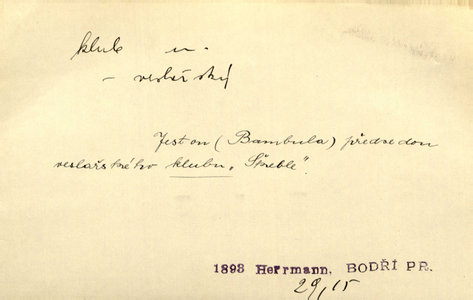 klub m.
– veslářský
Jest on (Bambula) předsedou
veslařského klubu „Střeble“.
1893 Herrmann, BODŘÍ PR.
29, 15